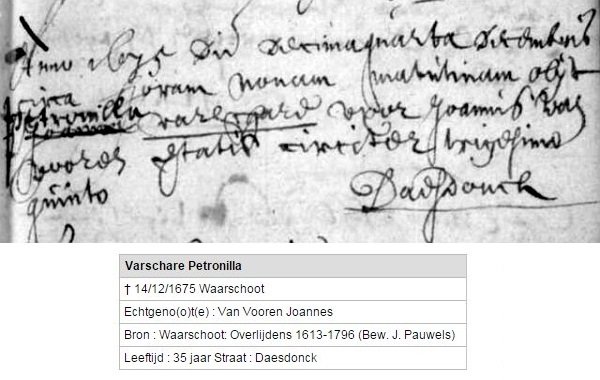 Anno 1675 die decimaquarta decembris
circa horam nonam matutinam obyt
petronilla varschare uxor Joannis van
vooren etatis circiter trigesimo
quinto Daesdonck
Varschare Petronilla
† 14/12/1675 Waarschoot
Echtgeno(o)t(e) : Van Vooren Joannes
Bron : Waarschoot: Overlijdens 1613-1796 (Bew. J. Pauwels)
Leeftijd : 35 jaar Straat : Daesdonck